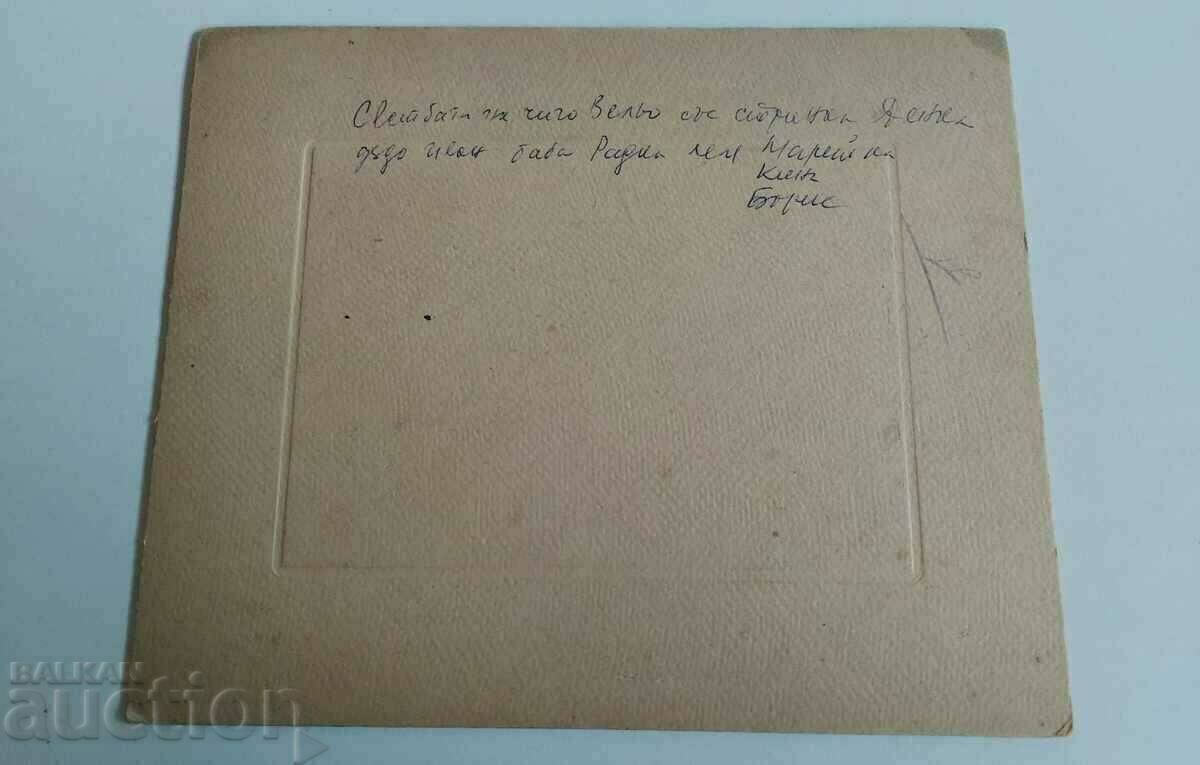 Сватбата на чичо Вельо със стринка Денка
дядо баба Радка леля Марийка
Борис
BALKAN
auction